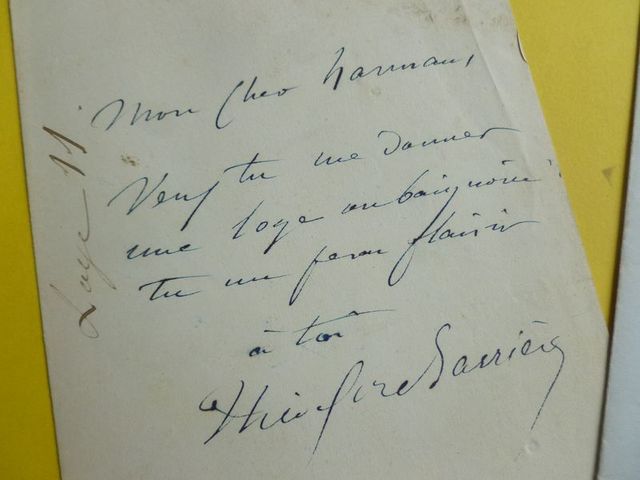 Mon cher harmant,
Veux tu me donner
une loge ou baignoire
tu me feras plaisir
à toi
Théodore Barrière
Loge 11